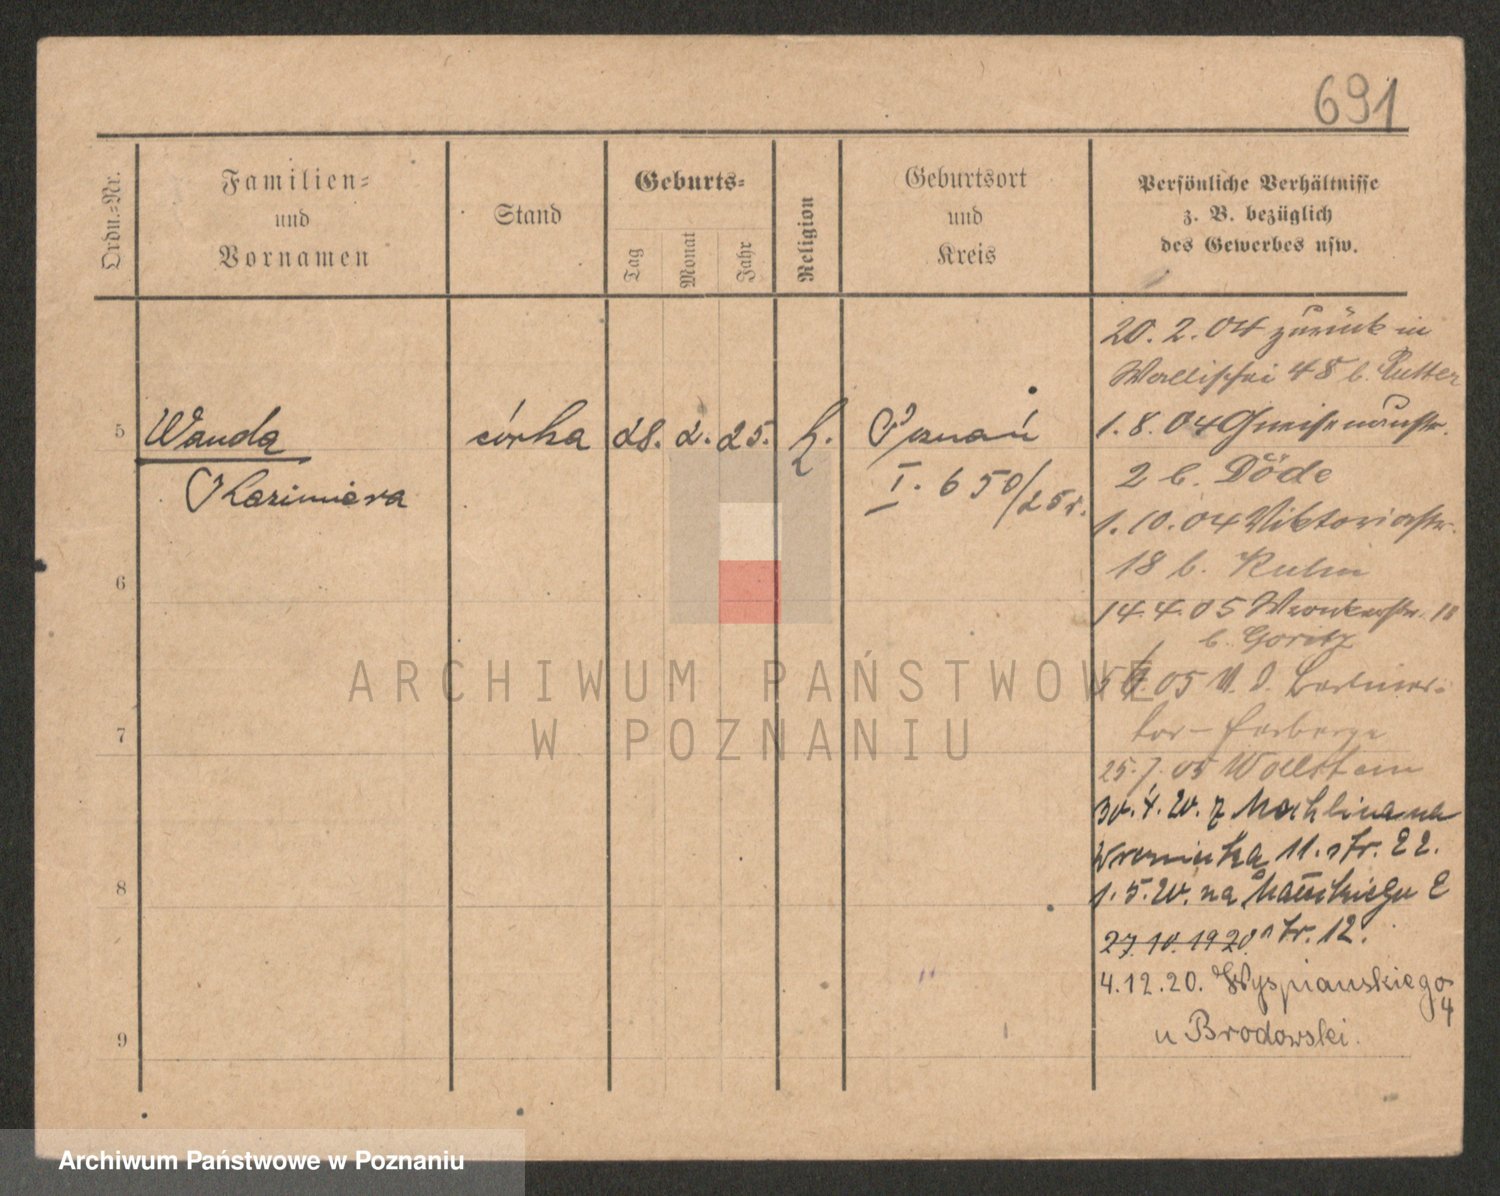 691
Ordn.-Nr.
Familien-
und
Vornamen
Stand
Geburts-
Tag
Monat
Jahr
Religion
Geburtsort
und
Kreis
Persönliche Verhältnisse
z. B. bezüglich
des Gewerbes usw.
5
Wanda
Kazimiera
córka
28. 2. 25.
k.
Poznań
I. 650/25
6
7
8
9
20. 2. 04 zurück in
Wallischei 48 b. Rutter
1. 8. 04 Gneisenaustr.
2 b. Döde
1. 10. 04 Viktoriastr.
18 b.
14. 4. 05 Wronkerstr. 18
b. Goritz
05 Berliner-
tor-
25. 7. 05 Wollstein
30. 4. 20. z na
11. str. 22.
1. 5. 20. na
27. 10. 1920 str. 12.
4. 12. 20. Wyspianskiego
4
u Brodowski.
ARCHIWUM PAŃSTWOWE
W POZNANIU
Archiwum Państwowe w Poznaniu